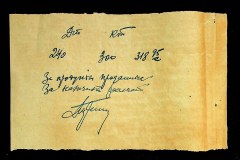 Дт Кт
240 300 318 95
За продукты проданные
За наличный расчёт